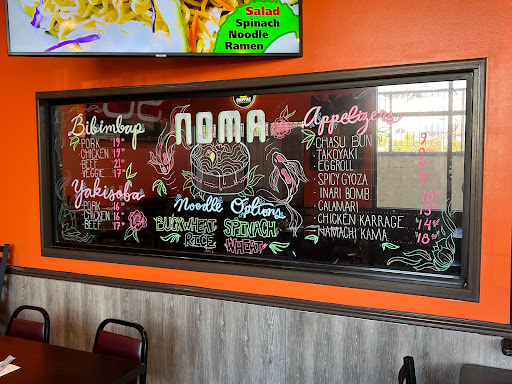 Salad
Spinach
Noodle
Ramen
NOMA
Bibimbap
PORK 19
CHICKEN 19
BEEF 21
VEGGIE 17
Yakisoba
PORK 16
CHICKEN 16
BEEF 17
Noodle Options
BUCKWHEAT SPINACH
RICE WHEAT
Appetizers
CHASU BUN 9
TAKOYAKI
EGGROLL
SPICY GYOZA
INARI BOMB 10
CALAMARI 15
CHICKEN KARRAGE 14
HAMACHI KAMA 18